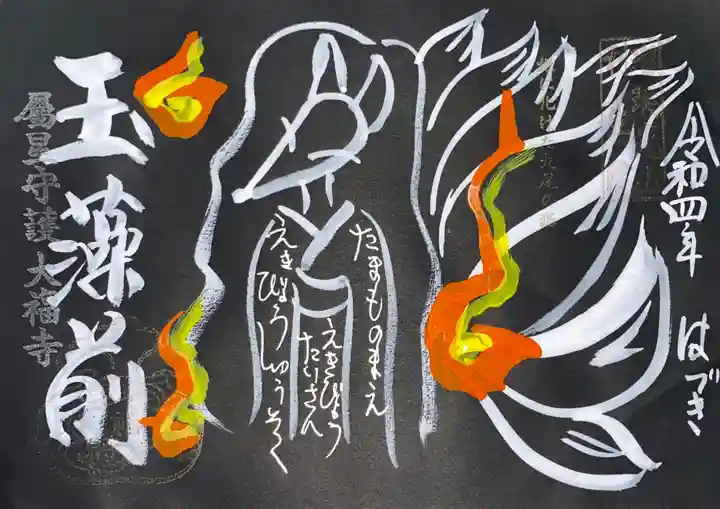 令和四年 はづき
たまものまえ
えきびょう
たいさん
えきびょうしゅうそく
玉藻前
属星守護 大福寺